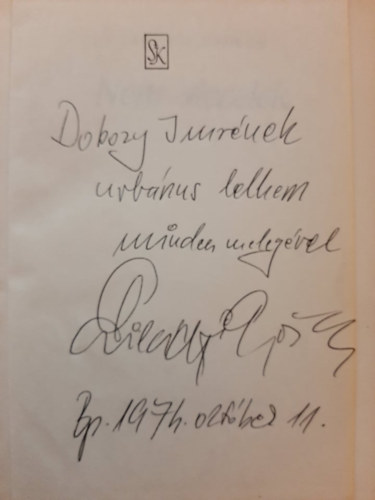 SK
Dobozy Imrének
urbánus lelkem
minden melegével
Bp. 1974. október 11.